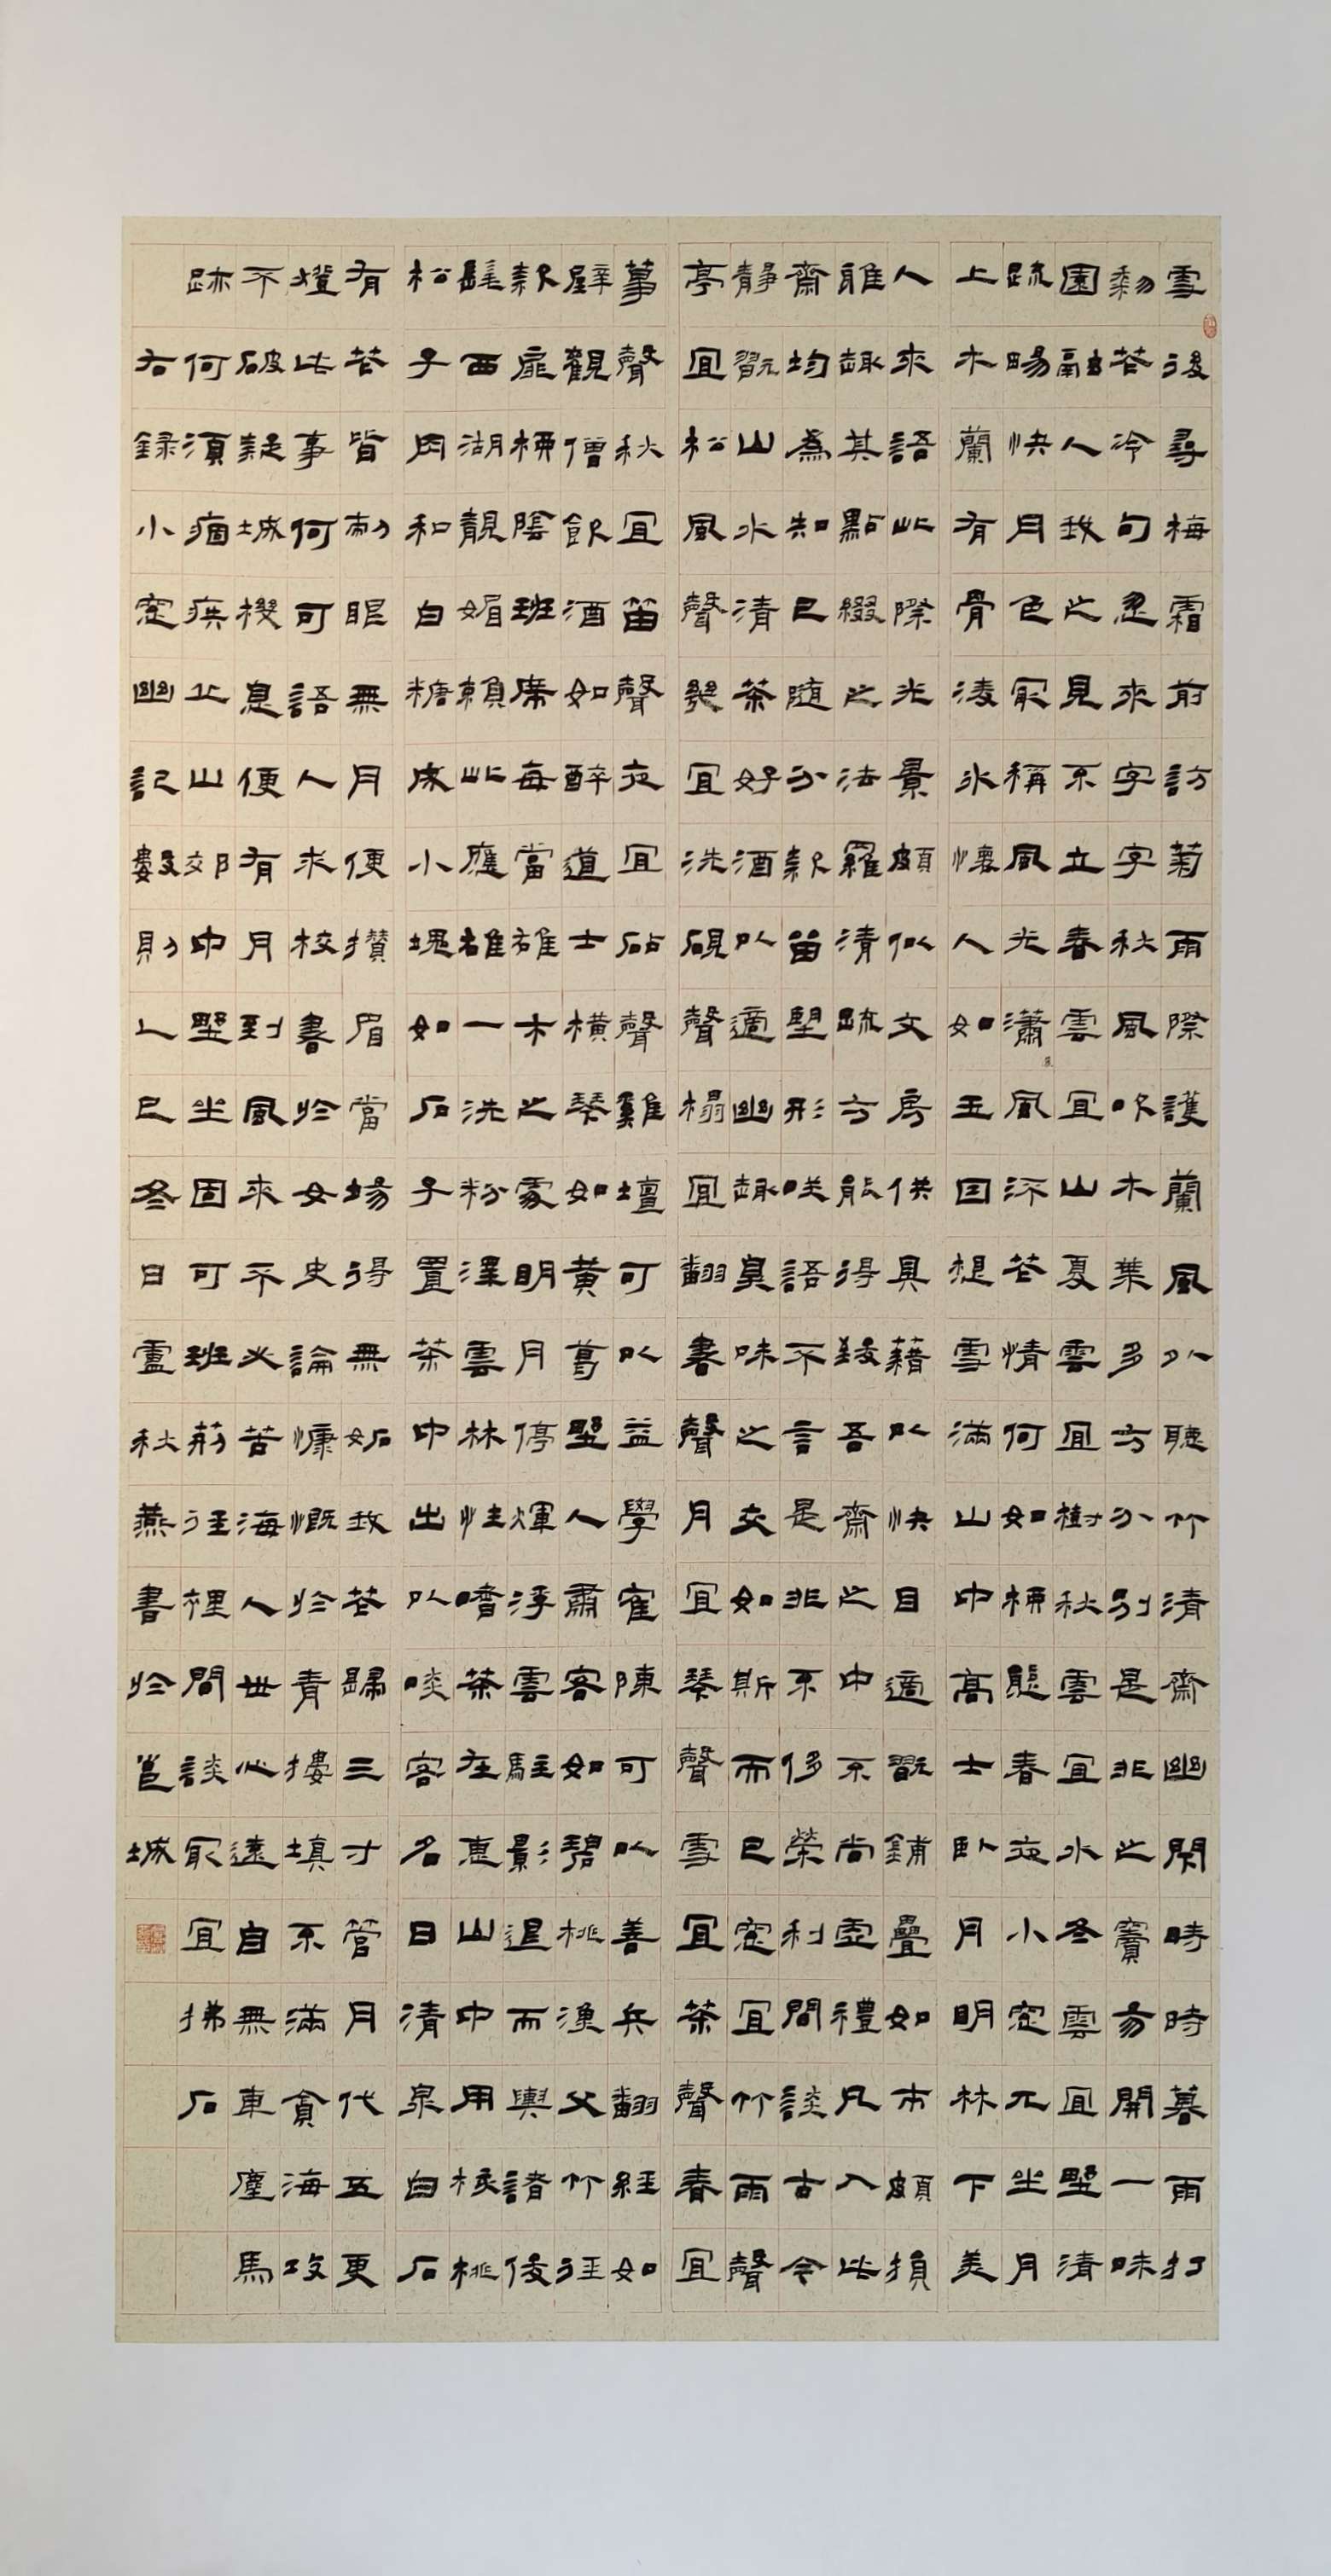 雪後尋梅霜前訪菊雨際護蘭風外聽竹清齋幽閑時時暮雨打
梨花冷句忽來字字秋風吹木葉多方分別是非之竇旁開一味
園融人我之見不立春雲宜山夏雲宜樹秋雲宜水冬雲宜野清
疏暢快月色最稱風光瀟風流花情何如柳態春夜小窗兀坐月
上木蘭有骨凌冰懷人如玉因想雪滿山中高士臥月明林下美
人來語此際光景頗似文房供具藉以快目適玩鋪疊如市頗損
雅趣其點綴之法羅清疏方能得致吾齋之中不尚虛禮凡入此
齋均為知己隨分款留望形笑語不言是非不侈榮利間談古今
靜玩山水清茶好酒以適幽趣臭味之交如斯而已窗宜竹雨聲
亭宜松風聲几宜洗硯聲榻宜翻書聲月宜琴聲雪宜茶聲春宜
箏聲秋宜笛聲夜宜砧聲雞壇可以益學寉陳可以善兵翻經如
壁觀僧飲酒如醉道士橫琴如黃葛野人肅客如碧桃漁父竹徑
款扉柳陰班席每當雄木之處明月停輝浮雲駐影退而與諸俊
髦西湖靚媚賴此應雄一洗粉澤雲林性嗜茶在惠山中用核桃
松子肉和白糖成小塊如石子置茶中出以啖客名曰清泉白石
有花皆刺眼無月便攢眉當場得無妒我花歸三寸管月代五更
燈此事何可語人求校書於女史論慷慨於青樓填不滿貪海攻
不破疑城機息便有月到風來不必苦海人世心遠自無車塵馬
跡何須痼疾丘山郊中野坐固可班荊徑裡間談最宜拂石
右錄小窗幽記數則乙巳冬日盧秋燕書於邕城